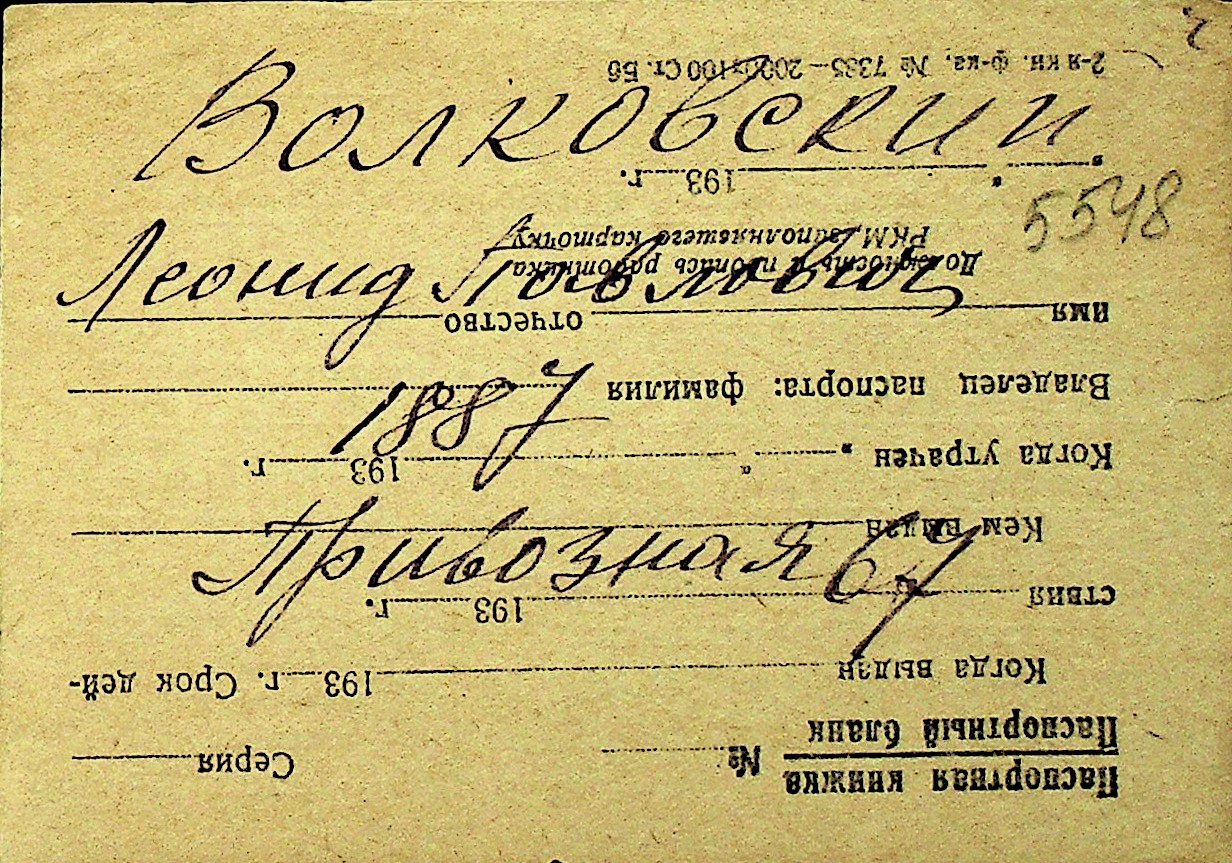 Волковский
5548
Леонид Павлович
1887
Привозная 67
Паспортная книжка
Паспортный бланк № Серия
Когда выдан 193 г. Срок дей-
ствия 193 г.
Кем выдан
Когда утрачен „ " 193 г.
Владелец паспорта: фамилия
имя отчество
Должность и подпись работника
РКМ, заполнявшего карточку
„ " 193 г.
2-я кн. ф-ка, № 7385—2000×100 Ст. Б6